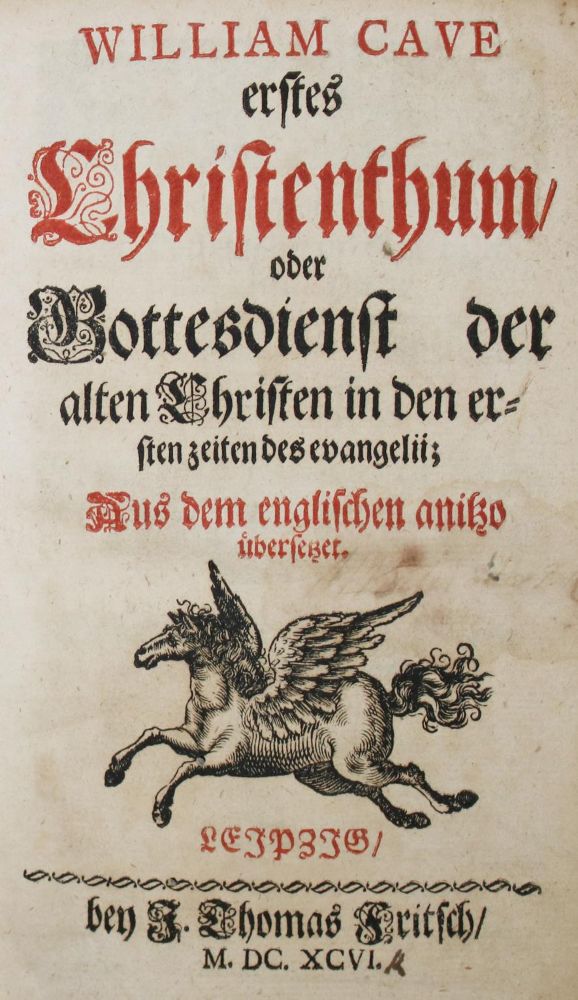 WILLIAM CAVE
erſtes
Chriſtenthum/
oder
Gottesdienſt der
alten Chriſten in den er⸗
ſten zeiten des evangelii;
Aus dem engliſchen anitzo
uͤberſetzet.
LEIPZIG/
bey J. Thomas Fritſch/
M. DC. XCVI.